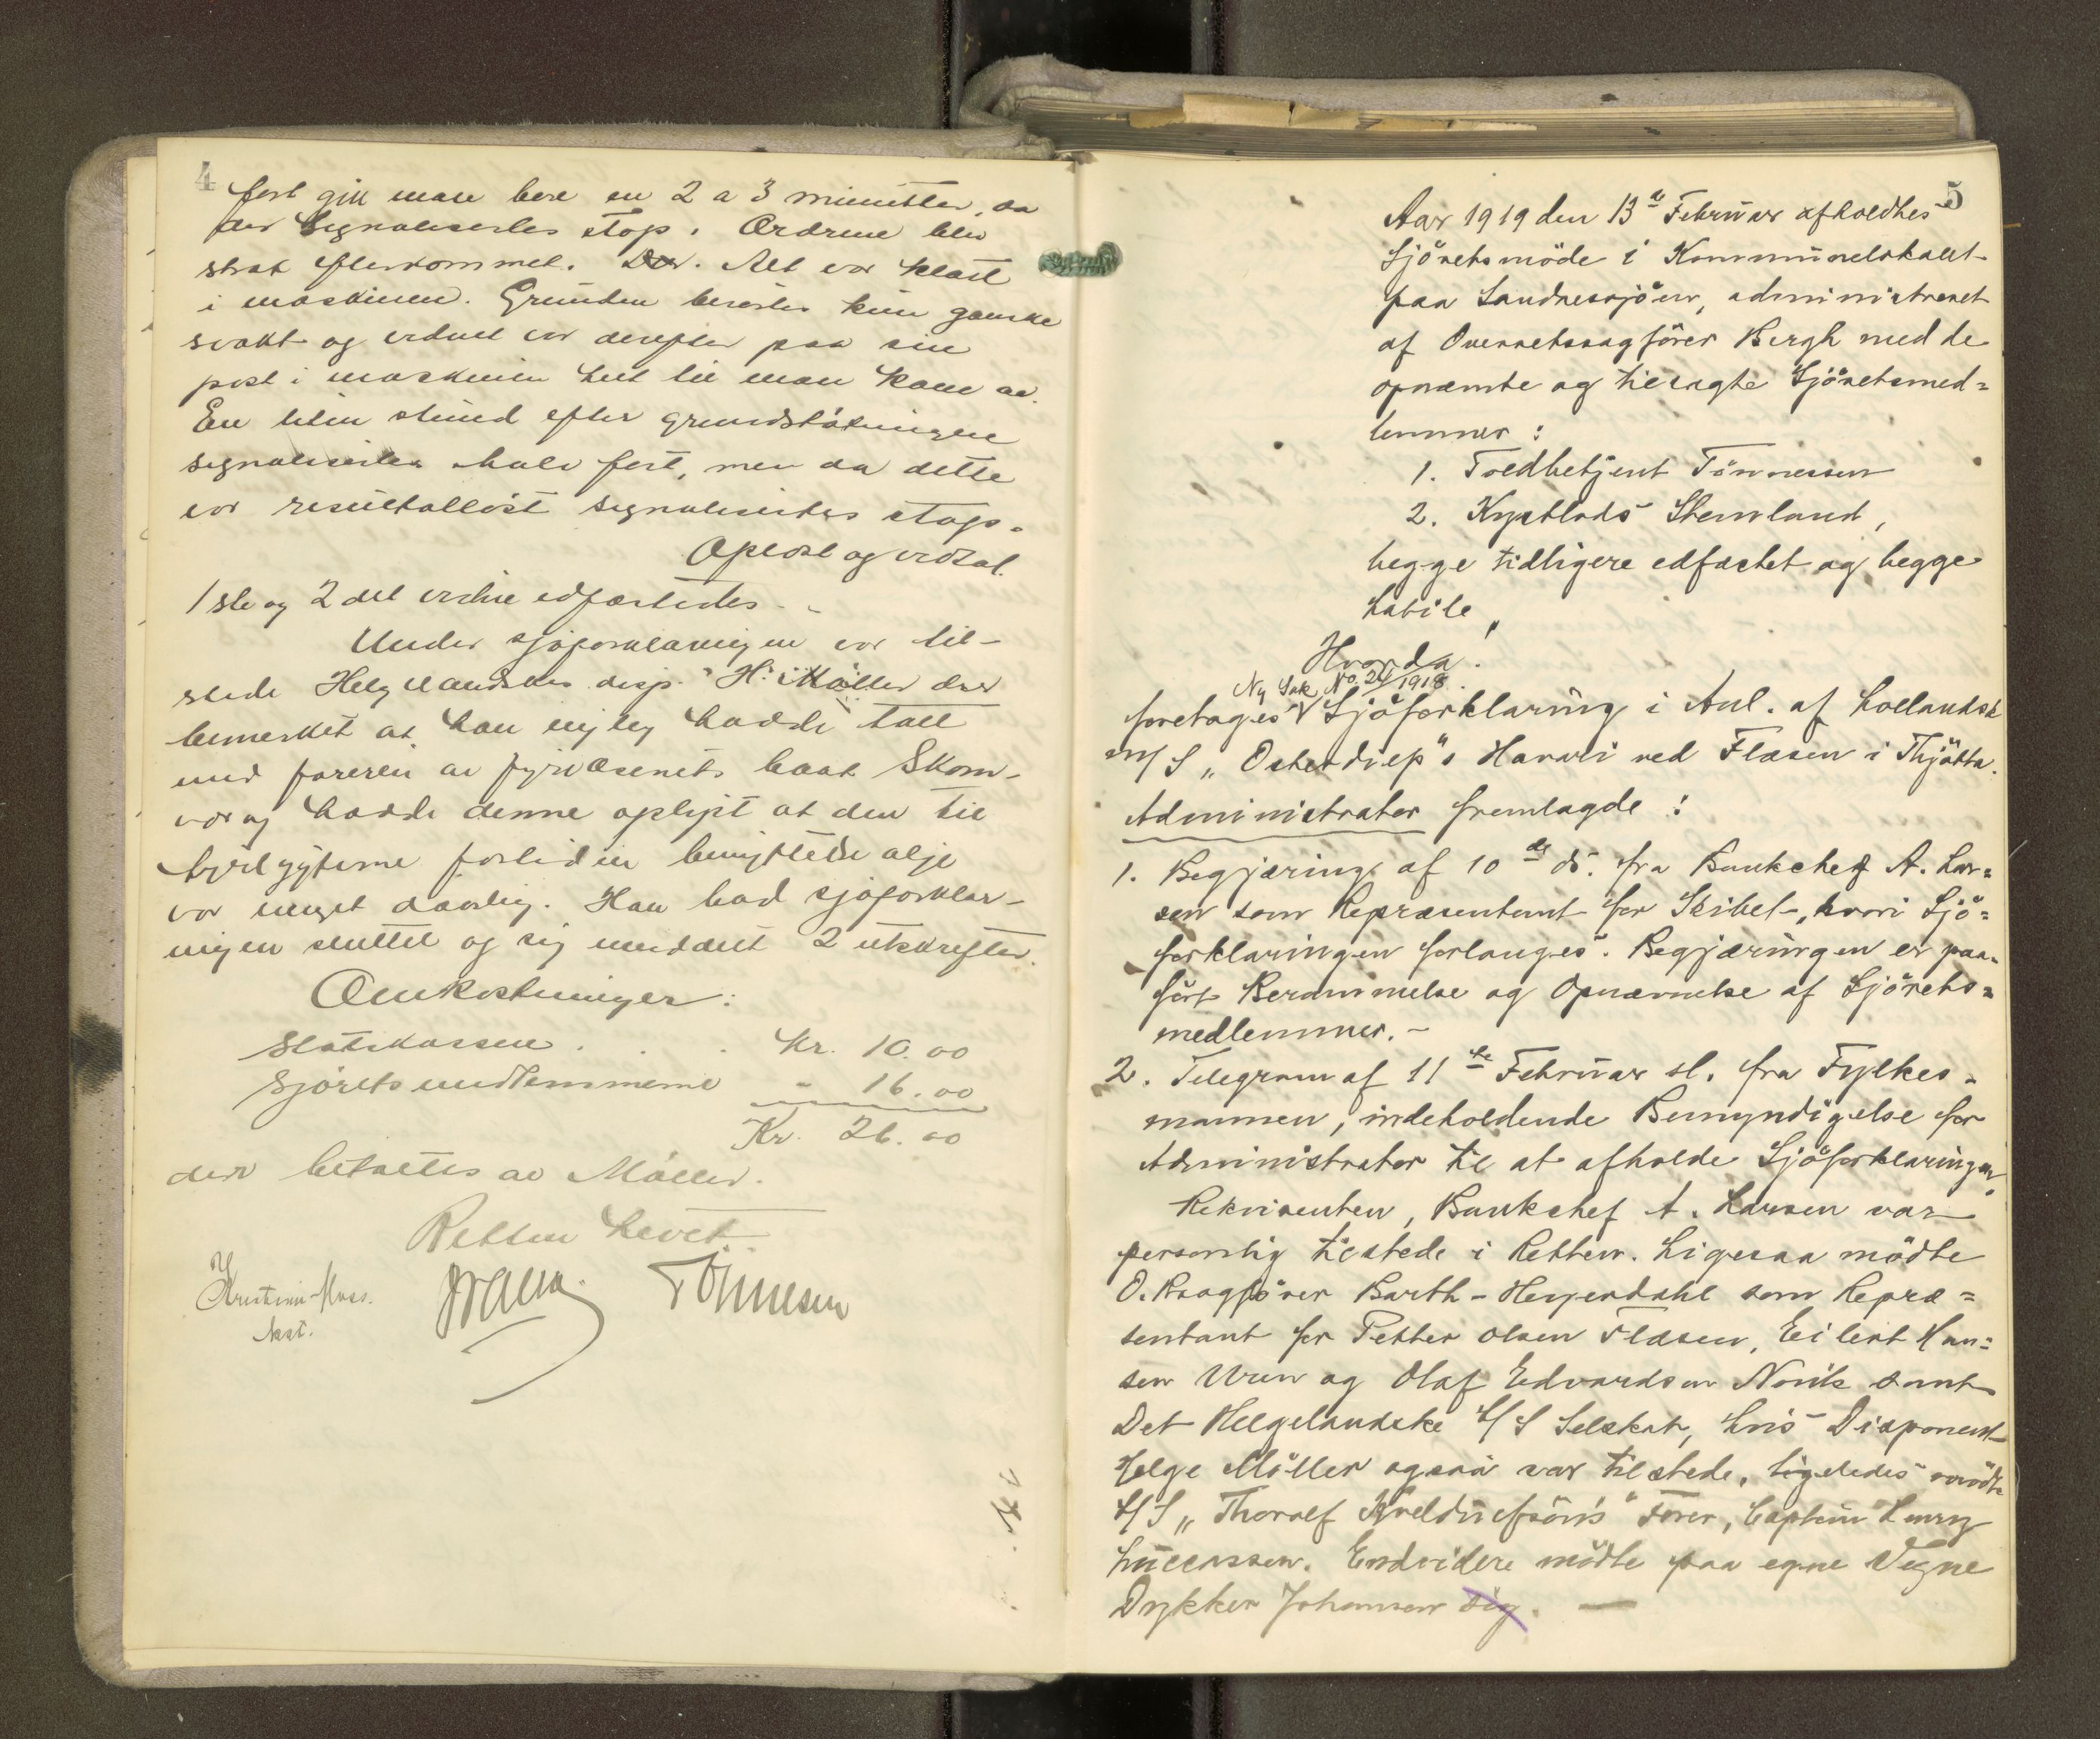 4
fort gik mase bere en 2 a 3 minutter, da
der signalisertes stop. Ordrene blev
strak efterkommet. Der. Alt var klart
i maskinen. Grunden berørtes kun ganske
svakt og vidnet var derefter paa sin
post i maskinen helt til man kom av.
En liten stund efter grundstøtningen
signalisertes halv fort, men da dette
var resultatløst signalisertes stop.
Oplæst og vedtat.
1ste og 2det vidne edfæstedes.
Under sjøforklaringen var til-
stede Helgelandskes disp. H. Møller der
bemerket at han nylig hadde talt
med føreren av fyrvæsenets baat Skom-
vær og hadde denne oplyst at den til
fyrlygterne for tiden benyttede olje
var meget daarlig. Han bad sjøforklar-
ingen sluttet og sig meddelt 2 utskrifter.
Omkostninger:
Statskassen . . . Kr. 10.00
Sjøretsmedlemmerne - 16.00
Kr. 26.00
der betaltes av Møller.
Retten hevet.
Tønnesen
5
Aar 1919 den 13de Februar afholdtes
Sjöretsmöde i Kommunelokalet
paa Sandnessjöen, administreret
af Overretssagförer Bergh med de
opnævnte og tilsagte Sjöretsmed=
lemmer:
1. Toldbetjent Tönnessen
2. Kystlods Stenland,
begge tidligere edfæstet og begge
habile,
Hvorda.
Ny Sak No. 24/1918.
foretoges Sjöforklaring i Anl. af hollandsk
M/S „Osterdiep"s Havari ved Flæsen i Thjötta.
Administrator fremlagde:
1. Begjæring af 10de ds. fra Bankchef A. Lar=
sen som Repræsentant for Skibet, hvori Sjö=
forklaringen forlanges. Begjæringen er paa=
fört Berammelse og Opnævnelse af Sjörets=
medlemmer. -
2. Telegram af 11te Februar sl. fra Fylkes=
mannen, indeholdende Bemyndigelse for
Administrator til at afholde Sjöforklaringen.
Rekvirenten, Bankchef A. Larsen var
personlig tilstede i Retten. Ligesaa mödte
O.Rsagförer Barth-Heyerdahl som Repræ=
sentant for Petter Olsen Flæsen, Eilert Han=
sen Uren og Olaf Edvardsen Norvik samt
Det Helgelandske D/S Selskab, hvis Disponent
Helge Möller ogsaa var tilstede. Ligeledes mödte
D/S „Thorolf Kveldulfsön's" Förer, Captein Henry
Lucassen. Endvidere mödte paa egne Vegne
Dykker Johansen sig. —